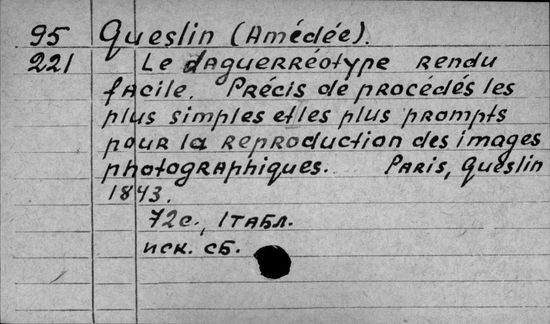 95 Queslin (Amédée).
221 Le daguerréotype rendu
facile. Précis de procédés les
plus simples et les plus prompts
pour la reproduction des images
photographiques. Paris, Queslin
1843.
72с., 1 табл.
иск. сб.